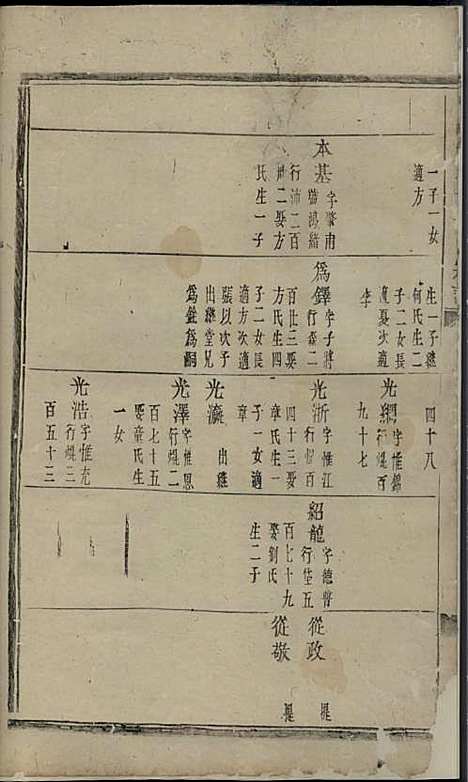 一子一女
適方
本基 字肇甫
號鴻緒
行沛二百
卅二娶方
氏生一子
生一子繼
何氏生二
子二女長
適夏次適
李
為鐸 字子將
行霖二
百廿三娶
方氏生四
子二女長
適方次適
張以次子
出繼堂兄
為鉦為嗣
四十八
光綱 字惟錦
行焜百
九十七
光浙 字惟江
行焜百
四十三娶
章氏生一
子一女適
章
光瀛 出繼
光澤 字惟恩
行焜二
百七十五
娶童氏生
一女
光浩 字惟充
行焜三
百五十三
紹龍 字德普
行垡五
百七十九
娶劉氏
生二子
從政
從敬